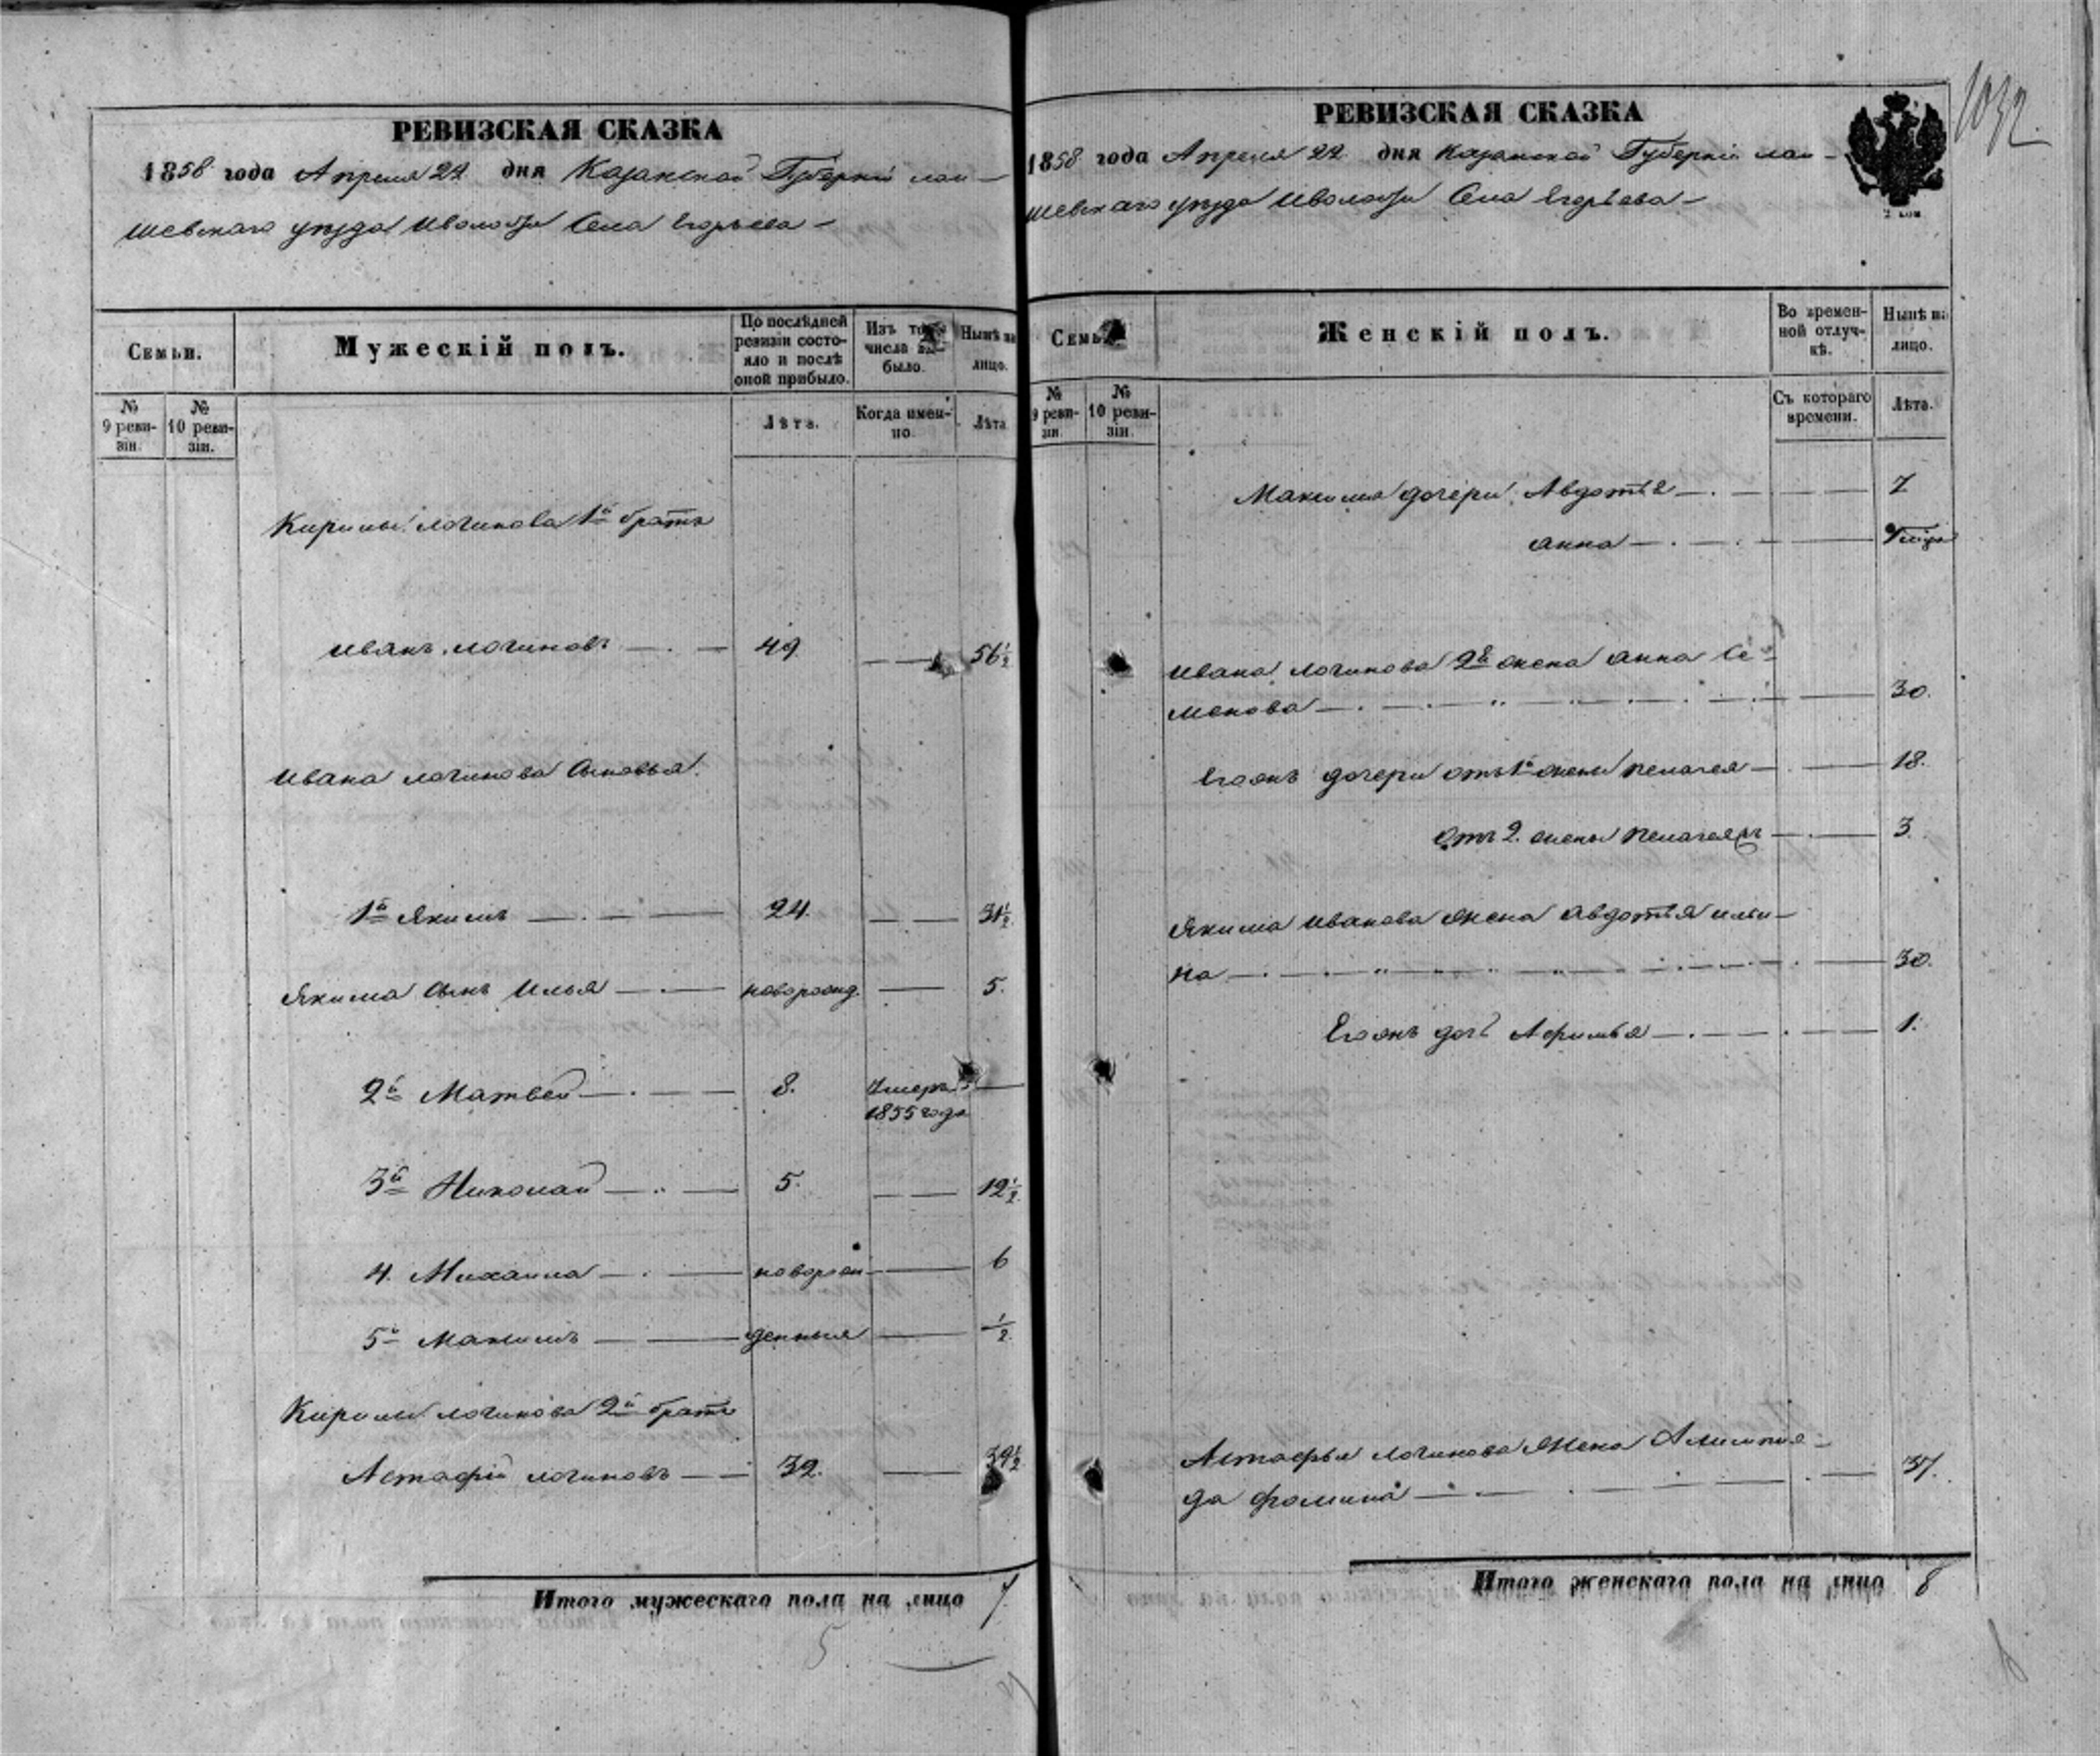 РЕВИЗСКАЯ СКАЗКА
1858 года Апреля 22 дня Казанской Губерніи лаи-
шевскаго уезда Иволости Села Егорьева
Семьи.
Мужескій полъ.
По послѣдней ревизіи состо-
яло и послѣ
оной прибыло.
Изъ того
числа вы-
было.
Нынѣ на
лицо.
№
9 реви-
зіи.
№
10 реви-
зіи.
Лѣта.
Когда имен-
но.
Лѣта
Кирилы логинова 1й братъ
иванъ логиновъ 49 56½
ивана логинова сыновья.
1й якимъ 24. 31½
якима сынъ илья новорожд. 5.
2й Матвей 8. Умеръ
1855 года
3й Николай 5. 12½
4. Михаила новорож 6
5й Максимъ ½
Кирилы логинова 2й братъ
Астафій логиновъ 32. 39½
Итого мужескаго пола на лицо 7
5
РЕВИЗСКАЯ СКАЗКА
1858 года Апреля 22 дня Казанской Губерніи лаи-
шевскаго уезда Иволости Села Егорьева
1032
Семьи
Женскій полъ.
Во времен-
ной отлуч-
кѣ.
Нынѣ на
лицо.
№
9 реви-
зіи.
№
10 реви-
зіи.
Съ котораго
времени.
Лѣта.
Максима дочери Авдотья 7
анна
ивана логинова 2я жена анна Се-
менова 30.
Егожъ дочери отъ 1й жены пелагея 18.
отъ 2. жены пелагеяжъ 3.
якима иванова жена авдотья ильи-
на 30.
Егожъ дочь Афимья 1.
Астафья логинова жена Алимпия-
да фомина 37.
Итого женскаго пола на лицо 8